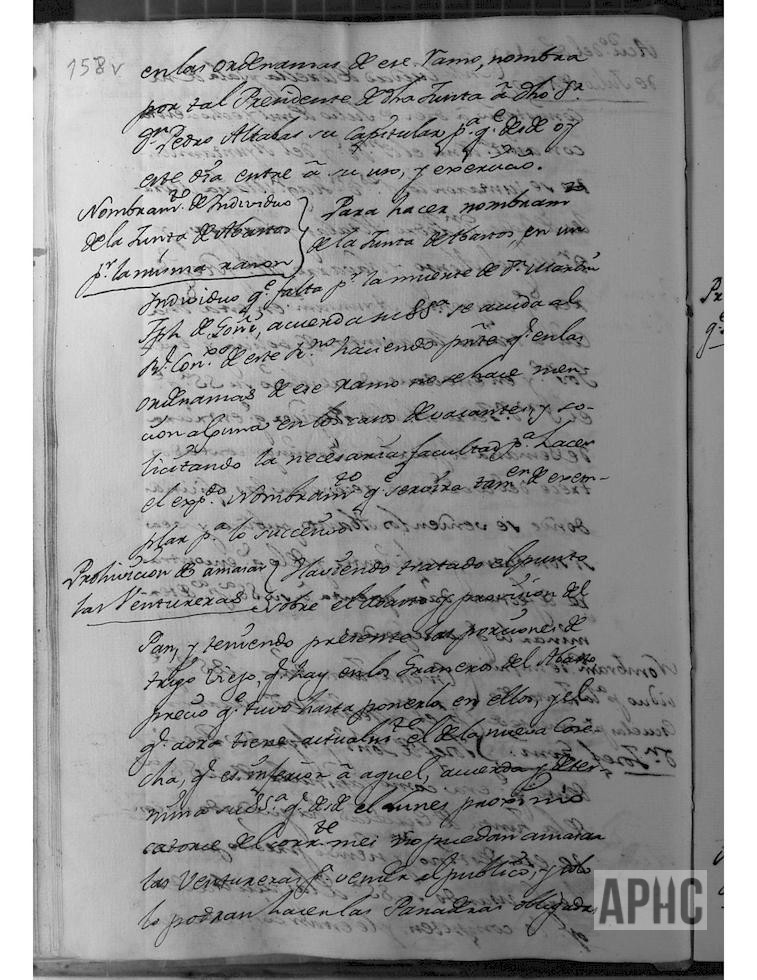 158v
en las ordenanzas de ese Ramo, nombra
por tal Presidente de dha Junta â dho Sr.
Dn. Pedro Altabas su Capitular pa. qe. desde oy
este dia entre â su uso, y exercicio.
Nombramto. de Individuo
de la Junta de Abastos
pr. la misma razon
Para hacer nombram
de la Junta de Abastos, en un
Individuo qe. falta pr. la muerte de Dn. Martin
Jph de Goñi, acuerda su SSa. se acuda al
Rl. Conso. de este Rno. haciendo pnte qe. en las
ordenanzas de ese ramo no se hace men-
cion alguna en los casos de vacante, y so-
licitando la necesaria facultad pa. hacer
el expdo. Nombramto qe. servira tamen. de exem-
plar pa. lo succesivo
Prohivicion de amasar
las Ventureras
Haviendo tratado el punto
sobre el Abasto y provision del
Pan, y teniendo presente las porciones de
trigo Viejo, qe. hay en los Graneros del Abasto
precio qe. tuvo hasta ponerlo en ellos, y el
qe. aora tiene actualmte. el de la nueva Cose-
cha, qe. es inferior â aquel, acuerda y deter-
mina su SSa. qe. desde el lunes proximo
catorce del corrte. mes no puedan amasar
las Ventureras pa. vender al publico, y solo
lo podran hacer las Panaderas obligadas
qe.
APHC